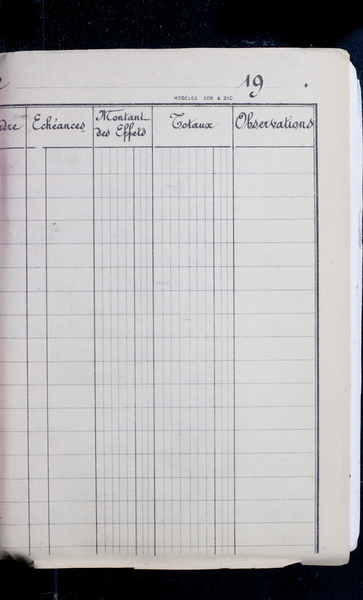 19 .
MODELES 209 & 210
Echéances
Montant des Effets
Totaux
Observations